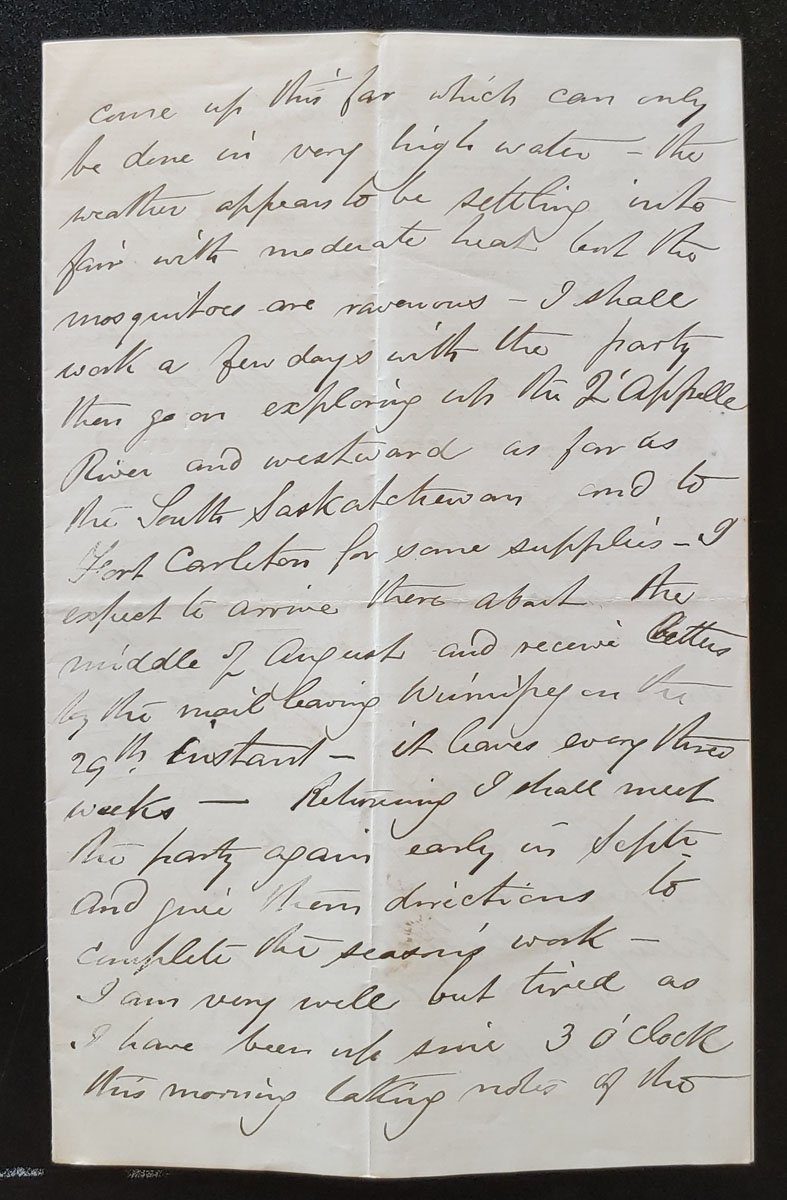 come up this far which can only
be done in very high water – the
weather appears to be settling into
fair with moderate heat but the
mosquitoes are ravenous – I shall
work a few days with the party
then go on exploring up the Q'Appelle
River and westward as far as
the South Saskatchewan and to
Fort Carleton for some supplies – I
expect to arrive there about the
middle of August and receive letters
by the mail leaving Winnipeg on the
29th. instant – it leaves every three
weeks — Returning I shall meet
the party again early in Septr
and give them directions to
complete the season's work –
I am very well but tired as
I have been up since 3 o'clock
this morning taking notes of the